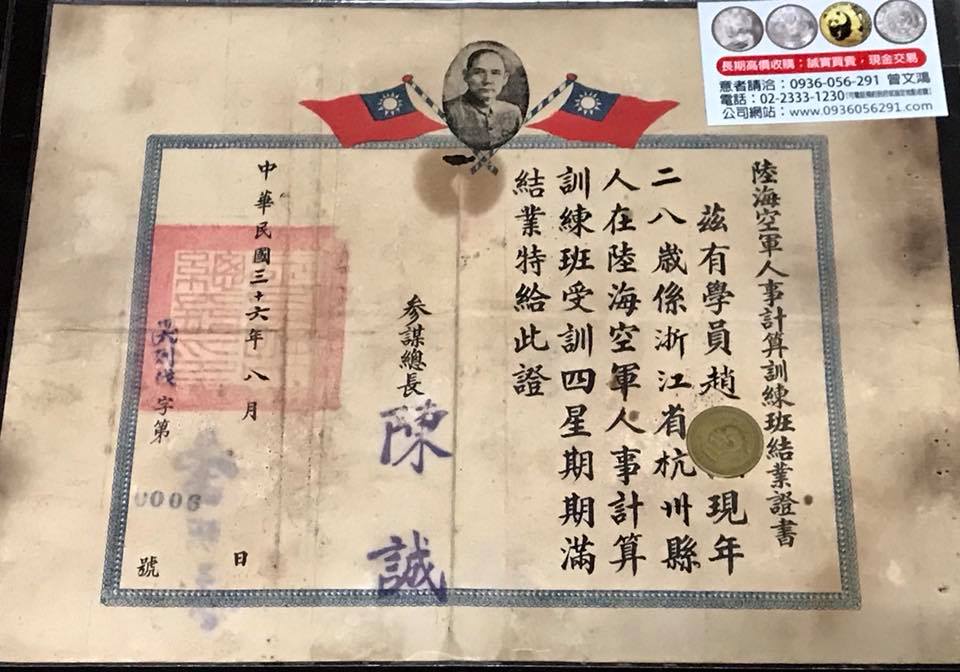 長期高價收購；誠實買賣，現金交易
意者請洽：0936-056-291 曾文鴻
電話：02-2333-1230
公司網站：www.0936056291.com
陸海空軍人事計算訓練班結業證書
茲有學員趙 現年
二八歲係浙江省杭州縣
人在陸海空軍人事計算
訓練班受訓四星期期滿
結業特給此證
參謀總長 陳誠
中華民國三十六年八月 日
字第 0006 號